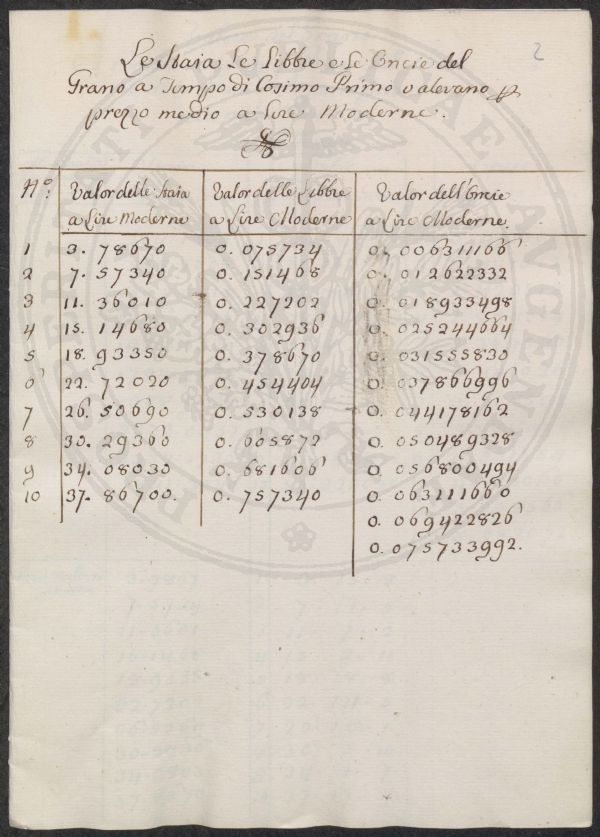 2
Le Staia Le Libbre e le Oncie del
Grano a Tempo di Cosimo Primo valevano
prezzo medio a Lire Moderne.
N.º Valor delle Staia Valor delle Libbre Valor dell'Oncie
a Lire Moderne a Lire Moderne a Lire Moderne.
1 3. 78670 0. 075734 0. 006311166
2 7. 57340 0. 151468 0. 012622332
3 11. 36010 0. 227202 0. 018933498
4 15. 14680 0. 302936 0. 025244664
5 18. 93350 0. 378670 0. 031555830
6 22. 72020 0. 454404 0. 037866996
7 26. 50690 0. 530138 0. 044178162
8 30. 29360 0. 605872 0. 050489328
9 34. 08030 0. 681606 0. 056800494
10 37. 86700. 0. 757340 0. 063111660
0. 069422826
0. 075733992.